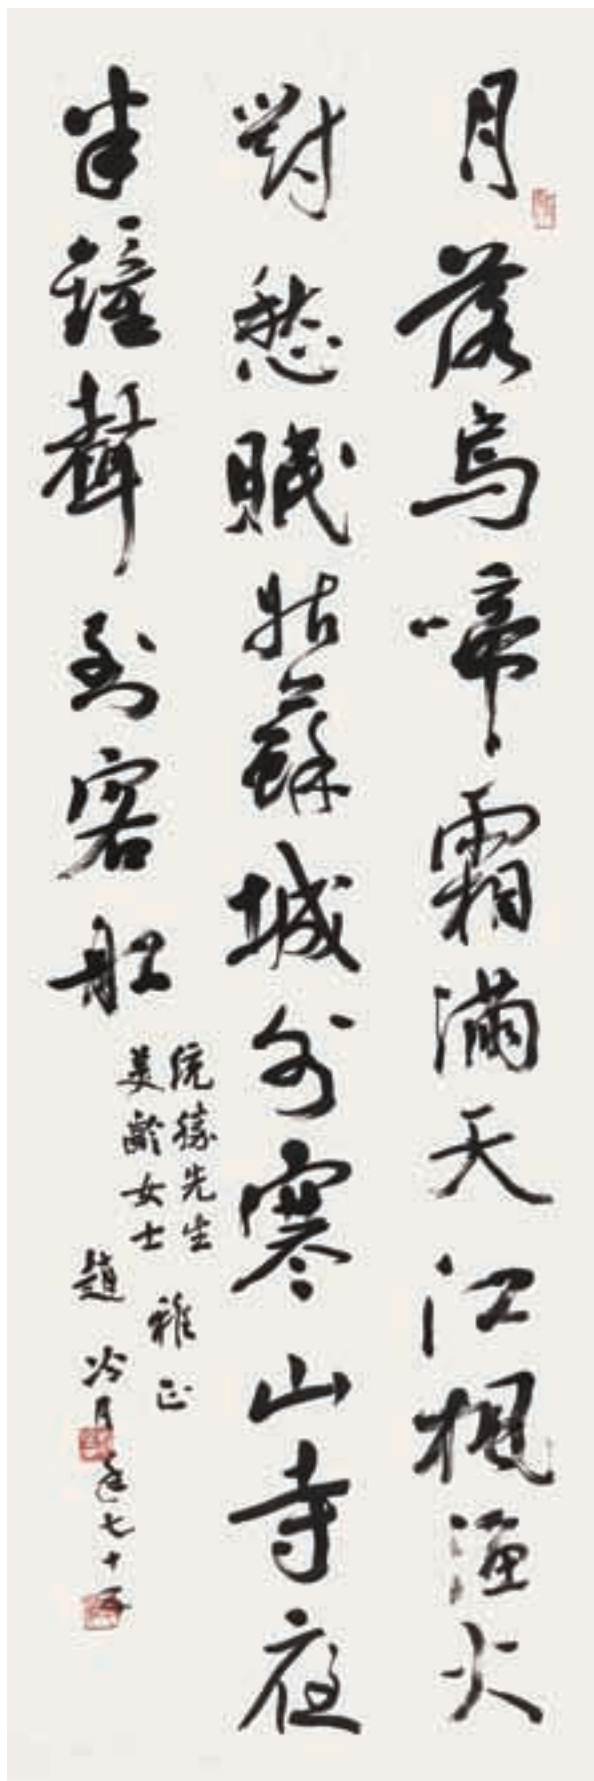 月落烏啼霜滿天江楓漁火
對愁眠姑蘇城外寒山寺夜
半鐘聲到客船
先生
美齡女士
雅正
趙冷月年七十五